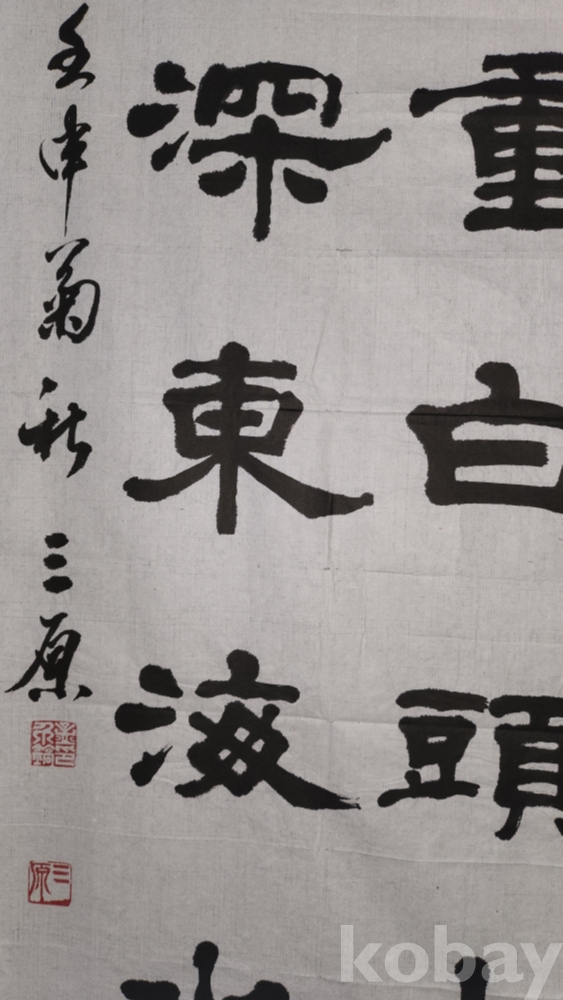 重白頭
深東海
壬申菊秋 三原
三原
kobay